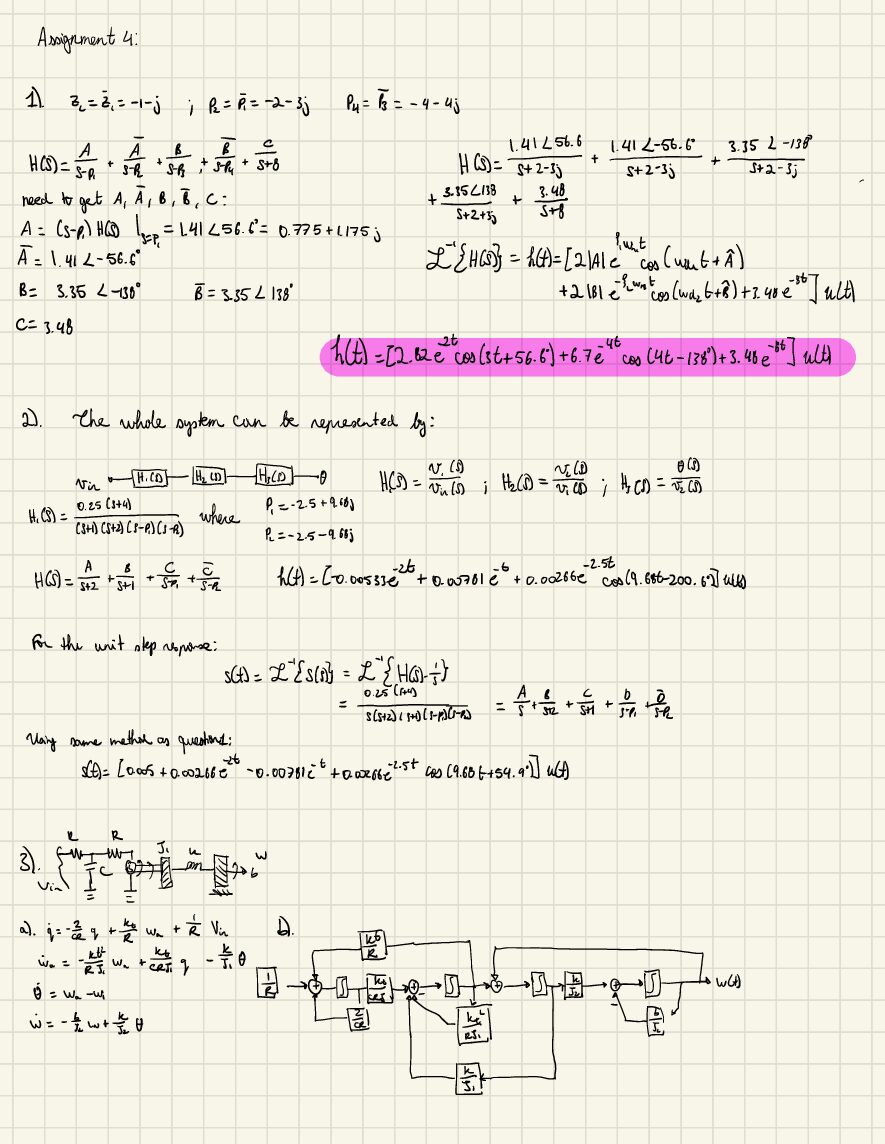 Assignment 4:
1). z₂ = z̄₁ = -1-j ; p₂ = p̄₁ = -2-3j P₄ = P̄₃ = -4-4j
H(s) = A/(s-p₁) + Ā/(s-p₂) + B/(s-p₃) + B̄/(s-p₄) + C/(s+8)
need to get A, Ā, B, B̄, C:
A = (s-p₁) H(s) |s=p₁ = 1.41∠56.6° = 0.775+1.175j
Ā = 1.41∠-56.6°
B = 3.35 ∠-138° B̄ = 3.35∠138°
C = 3.48
H(s) = 1.41∠56.6/(s+2-3j) + 1.41∠-56.6°/(s+2-3j) + 3.35∠-138°/(s+2-3j)
+ 3.35∠138/(s+2+3j) + 3.48/(s+8)
ℒ⁻¹{H(s)} = h(t) = [2|A|e cos(
+2|B|e cos(ωd₂t+B̂)+3.48e^-8t] u(t)
h(t) = [2.82e^-2t cos(3t+56.6°)+6.7e^-4t cos(4t-138°)+3.48e^-8t] u(t)
2). The whole system can be represented by:
Vin H₁(s) H₂(s) H₃(s) θ
H₁(s) = v₁(s)/vin(s) ; H₂(s) = v₂(s)/v₁(s) ; H₃(s) = θ(s)/v₂(s)
H₁(s) = 0.25(s+4)/((s+1)(s+2)(s-p₁)(s-p₂)) where P₁ = -2.5+9.68j
P₂ = -2.5-9.68j
H(s) = A/(s+2) + B/(s+1) + C/(s-p₁) + C̄/(s-p₂)
h(t) = [-0.00533e^-2t + 0.00781e^-t + 0.00266e^-2.5t cos(9.68t-200.6°)] u(t)
For the unit step response:
s(t) = ℒ⁻¹{s(s)} = ℒ⁻¹{H(s)·1/s}
= 0.25(s+4)/(s(s+2)(s+1)(s-p₁)(s-p₂)) = A/s + B/(s+2) + C/(s+1) + D/(s-p₁) + D̄/(s-p₂)
Using same method as question1:
s(t) = [0.005 + 0.00266e^-2t - 0.00781e^-t + 0.00266e^-2.5t cos(9.68t+54.9°)] u(t)
3). R R J₁ k w
Vin C b
a). q̇ = -2/(CR) q + kb/R wₐ + 1/R Vin
ẇₐ = -kb²/(RJ₁) wₐ + kb/(CRJ₁) q - k/J₁ θ
θ̇ = wₐ - w₁
ẇ = -b/J₂ w + k/J₂ θ
b). kb/R
1/R + ∫ kb/(CRJ) + ∫ + ∫ k/J₂ + ∫ w(t)
2/CR kb²/RJ₁ b/J₂
k/J₁